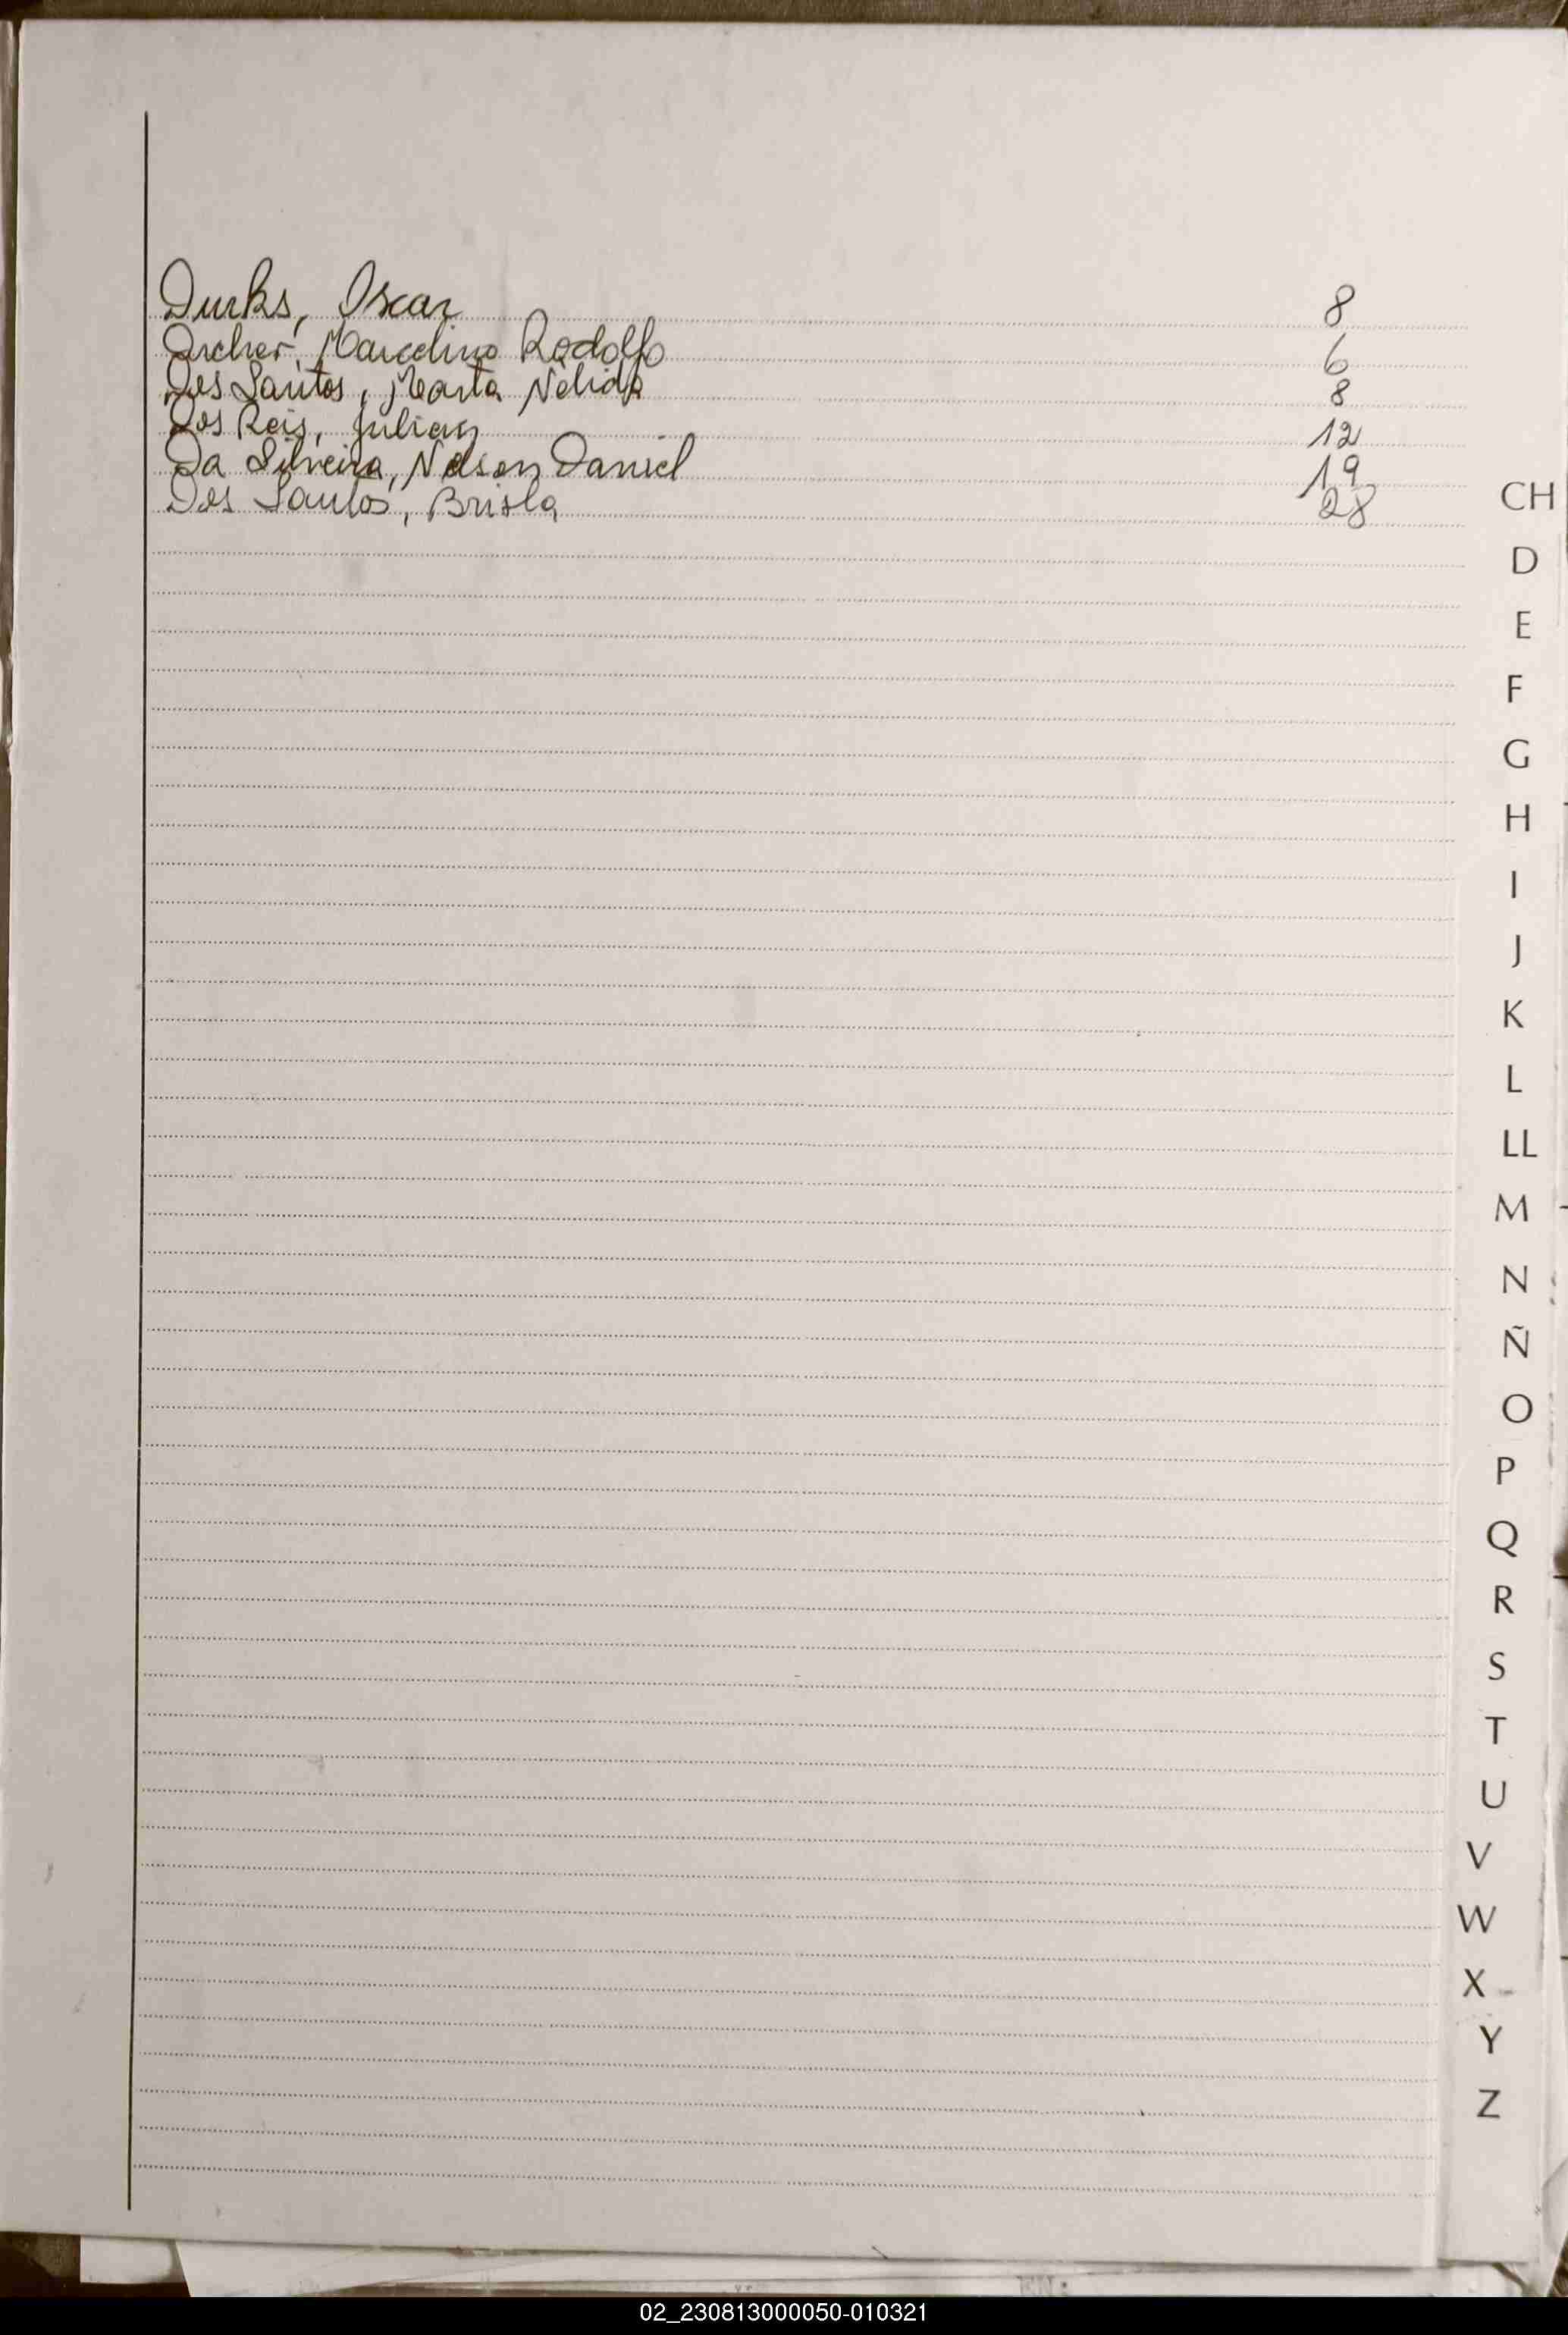 Durks, Oscar 8
Drcher, Marcelino Rodolfo 6
Dos Santos, Marta Nélida 8
Dos Reis, Julian 12
Da Silveira, Nelson Daniel 19
Dos Santos, Brisla 28
CH
D
E
F
G
H
I
J
K
L
LL
M
N
Ñ
O
P
Q
R
S
T
U
V
W
X
Y
Z
02_230813000050-010321